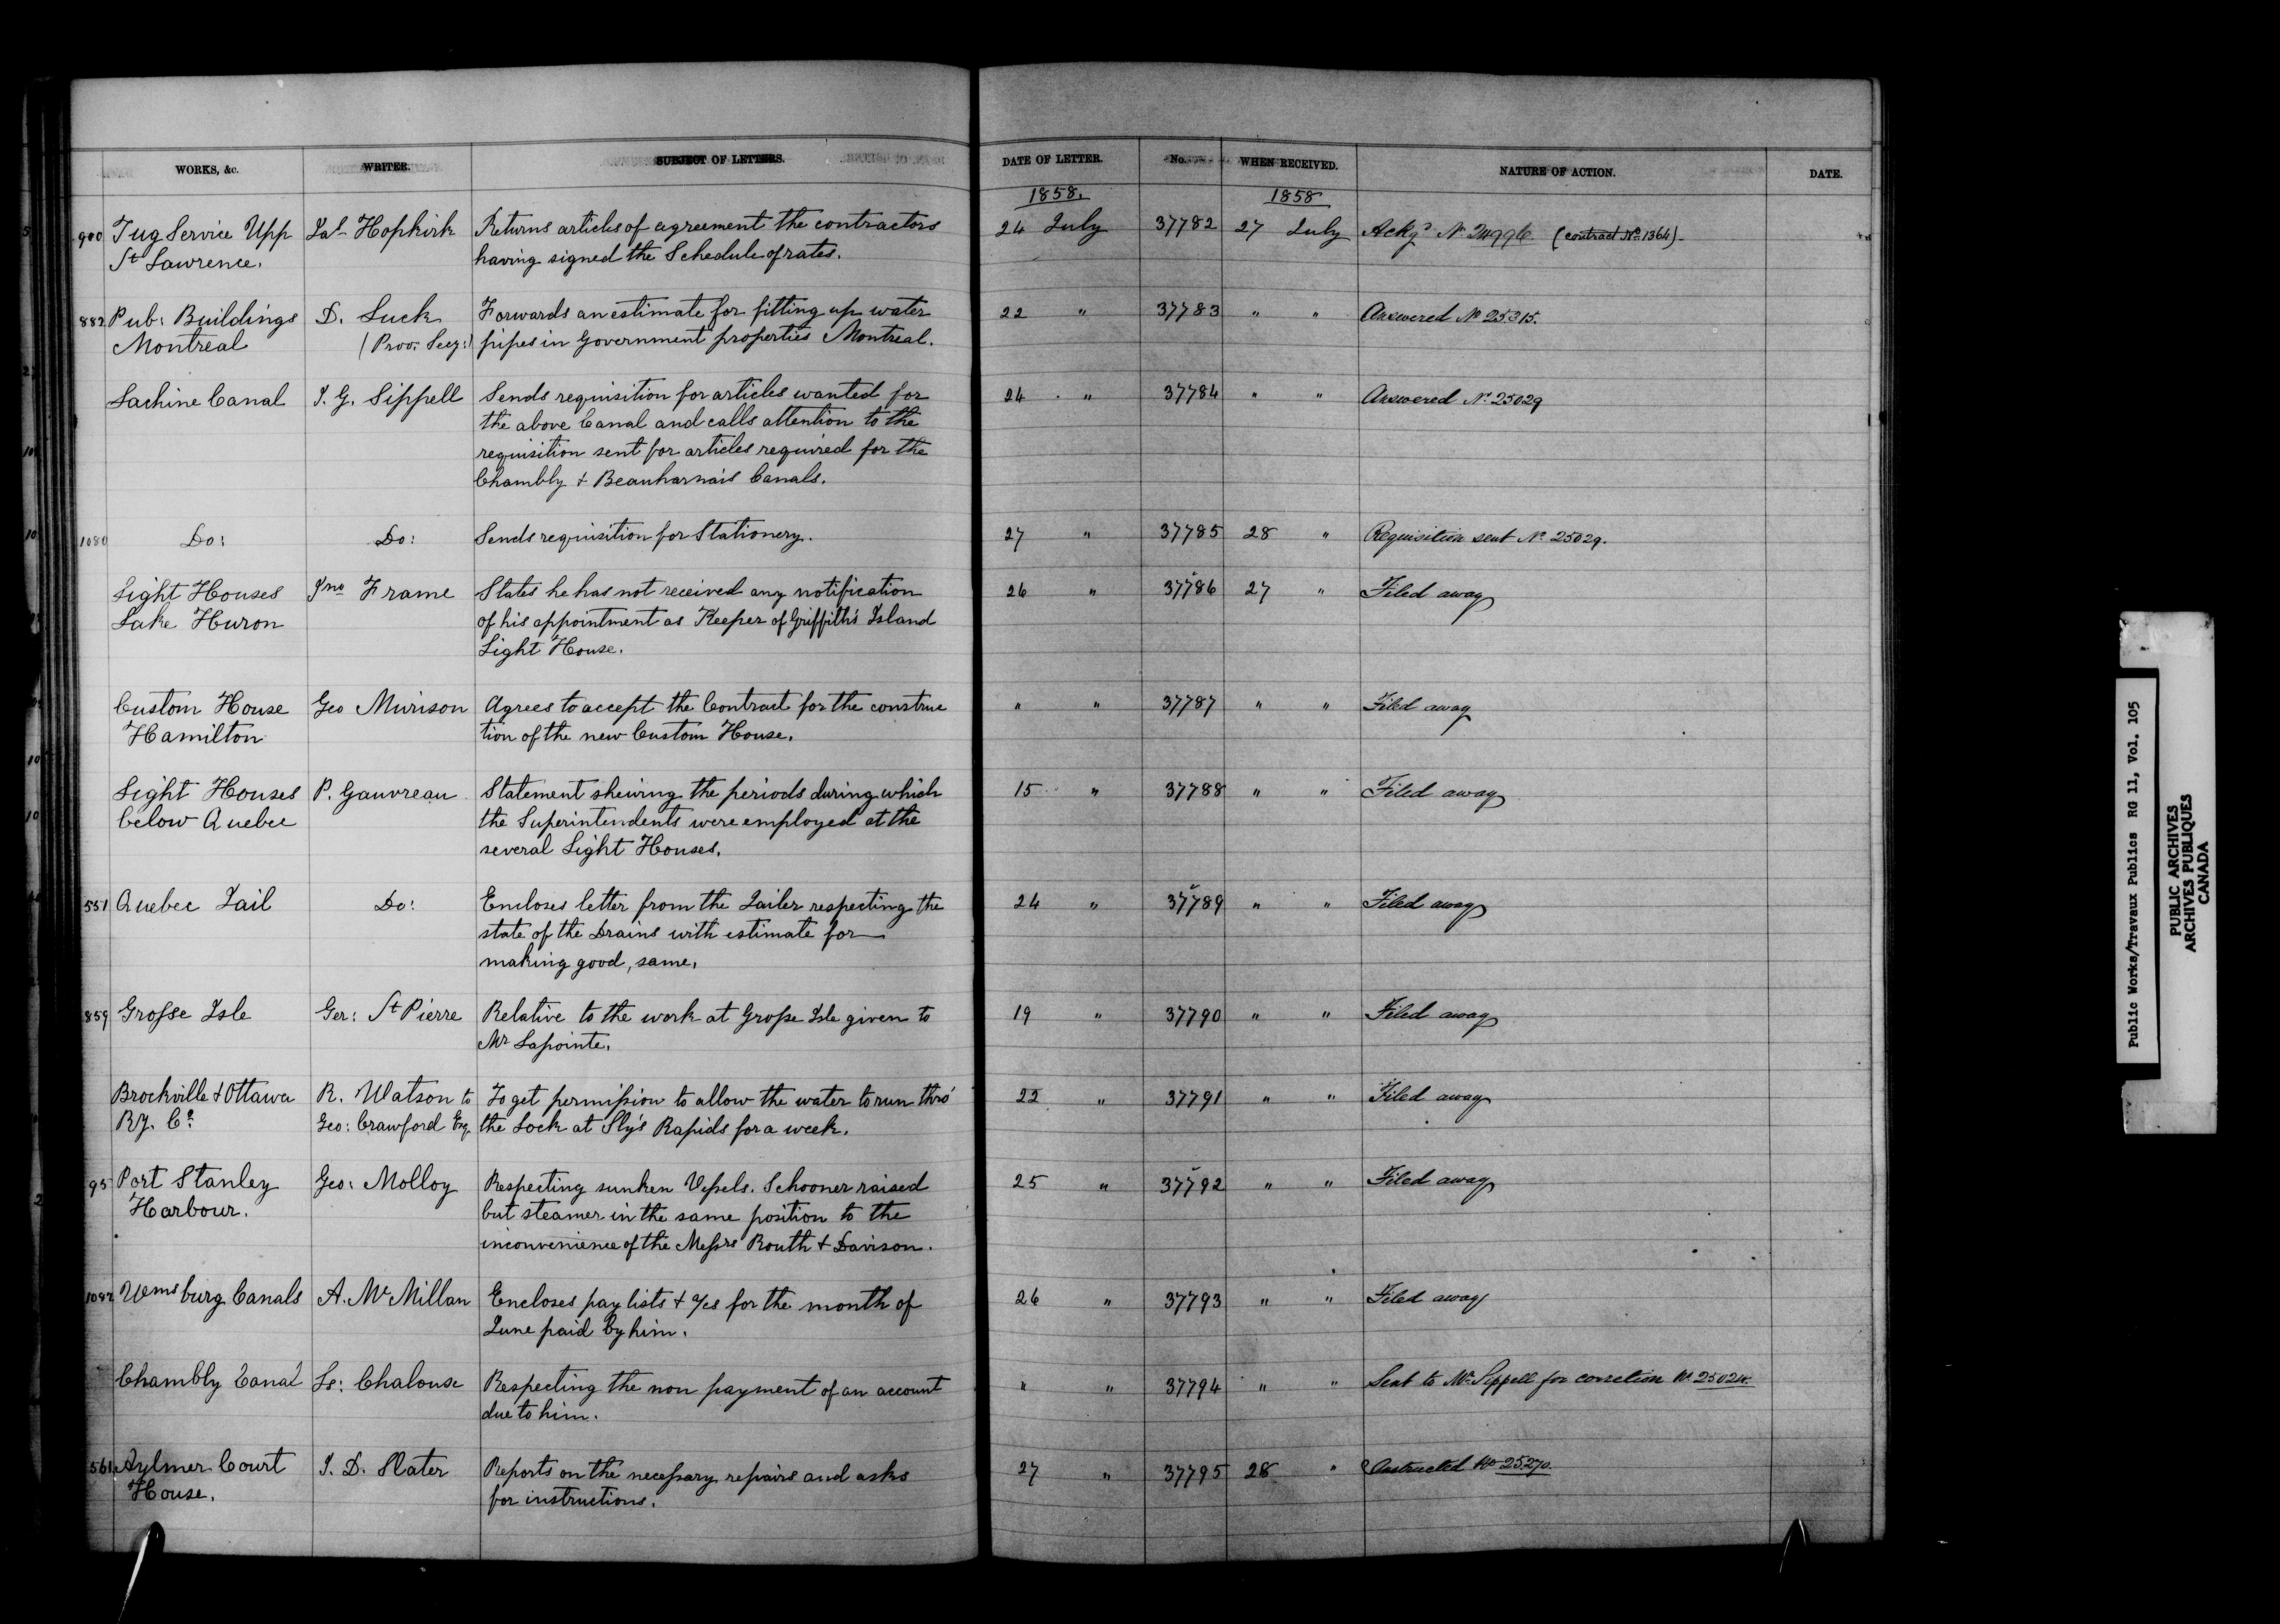 WORKS, &c. WRITER. SUBJECT OF LETTERS. DATE OF LETTER. No. WHEN RECEIVED. NATURE OF ACTION. DATE.
1858. 1858
900 Tug Service Upp Jas Hopkirk Returns articles of agreement the contractors 24 July 37782 27 July Ackgd No 24996 (contract No 1364)
St Lawrence. having signed the Schedule of rates.
882 Pub: Buildings D. Luck Forwards an estimate for fitting up water 22 " 37783 " " Answered No 25315.
Montreal (Prov: Secy:) pipes in Government properties Montreal.
Lachine Canal J. G. Sippell Sends requisition for articles wanted for 24 " 37784 " " Answered No 25029
the above Canal and calls attention to the
requisition sent for articles required for the
Chambly + Beauharnais Canals.
1080 Do: Do: Sends requisition for Stationery. 27 " 37785 28 " Requisition sent No 25029.
Light Houses Jno Frame States he has not received any notification 26 " 37786 27 " Filed away
Lake Huron of his appointment as Keeper of Griffith's Island
Light House.
Custom House Geo Murison Agrees to accept the Contract for the construc " " 37787 " " Filed away
Hamilton tion of the new Custom House.
Light Houses P. Gauvreau Statement shewing the periods during which 15 " 37788 " " Filed away
below Quebec the Superintendents were employed at the
several Light Houses.
551 Quebec Jail Do: Encloses letter from the Jailer respecting the 24 " 37789 " " Filed away
state of the Drains with estimate for
making good, same.
859 Grosse Isle Ger: St Pierre Relative to the work at Grosse Isle given to 19 " 37790 " " Filed away
Mr Lapointe.
Brockville + Ottawa R. Watson to To get permission to allow the water to run thro' 22 " 37791 " " Filed away
Ry. Co. Geo: Crawford Esq. the Lock at Sly's Rapids for a week.
95 Port Stanley Geo: Molloy Respecting sunken Vessels. Schooner raised 25 " 37792 " " Filed away
Harbour. but steamer in the same position to the
inconvenience of the Messrs Routh + Davison.
Wmsburg Canals A. McMillan Encloses pay lists + for the month of 26 " 37793 " " Filed away
June paid by him.
Chambly Canal Ls: Chalouse Respecting the non payment of an account " " 37794 " " Sent to Mr Sippell for correction No
due to him.
561 Aylmer Court J. D. Slater Reports on the necessary repairs and asks 27 " 37795 28 " Instructed No 25270.
House. for instructions.
Public Works/Travaux Publics RG 11, Vol. 105
PUBLIC ARCHIVES
ARCHIVES PUBLIQUES
CANADA